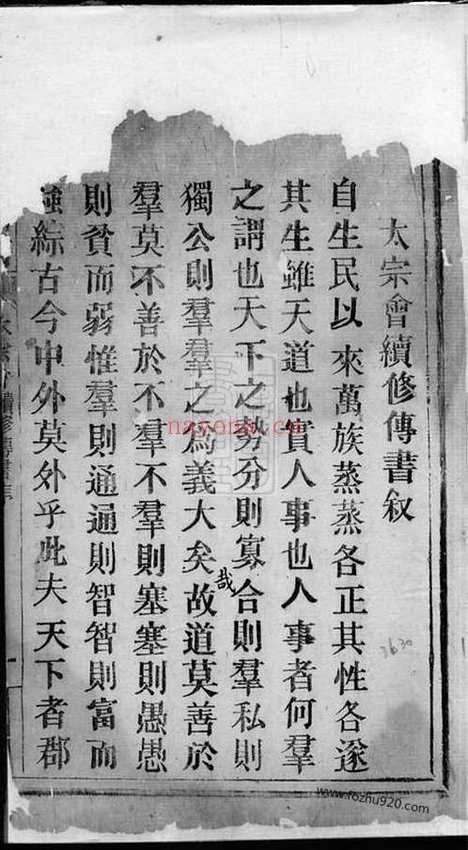 太宗會續修傳書叙
自生民以來萬族蒸蒸各正其性各遂
其生雖天道也實人事也人事者何羣
之謂也天下之勢分則寡合則羣私則
獨公則羣羣之為義大矣哉故道莫善於
羣莫不善於不羣不羣則塞塞則愚愚
則貧而弱惟羣則通通則智智則富而
強綜古今中外莫外乎此夫天下者郡
續修傳書
3630
nayona.cn
www.fozhu920.com